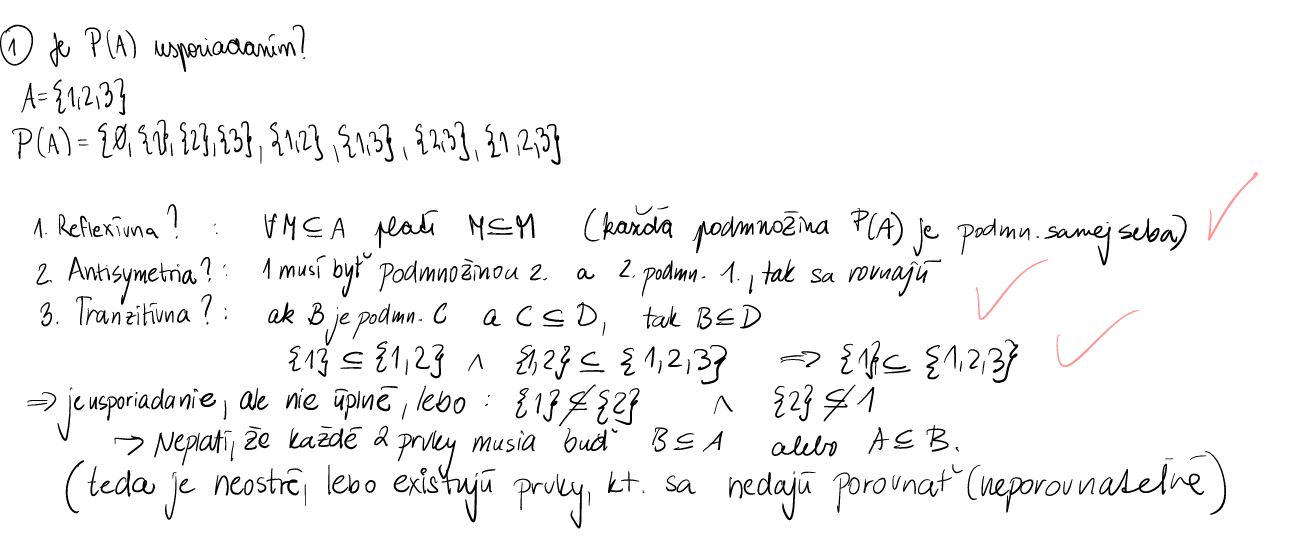 ① Je P(A) usporiadaním?
A={1,2,3}
P(A) = {Ø, {1}, {2}, {3}, {1,2}, {1,3}, {2,3}, {1,2,3}
1. Reflexívna? : ∀M⊆A platí M⊆M (každá podmnožina P(A) je podmn. samej seba)
2. Antisymetria? : 1 musí byť podmnožinou 2. a 2. podmn. 1., tak sa rovnajú
3. Tranzitívna? : ak B je podmn. C a C⊆D, tak B⊆D
{1} ⊆ {1,2} ∧ {1,2} ⊆ {1,2,3} => {1} ⊆ {1,2,3}
=> je usporiadanie, ale nie úplné, lebo : {1} ⊄ {2} ∧ {2} ⊄ 1
→ Neplatí, že každé 2 prvky musia buď B⊆A alebo A⊆B.
(teda je neostré, lebo existujú prvky, kt. sa nedajú porovnať (neporovnateľné)